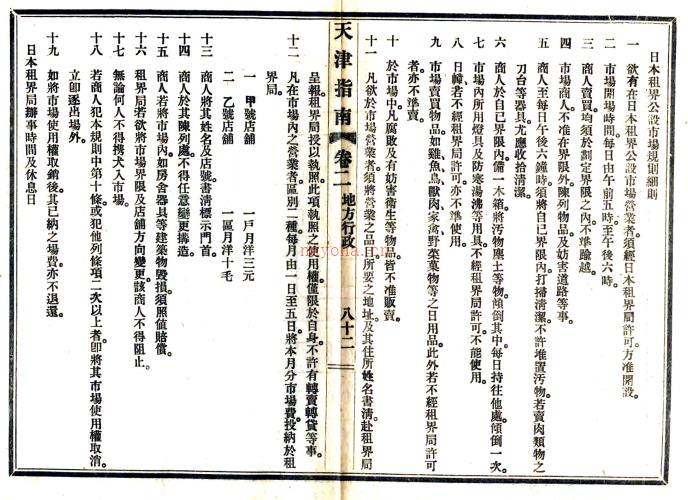 日本租界公設市場規則細則
一　欲有在日本租界公設市場營業者須經日本租界局許可方准開設。
二　市場開場時間每日由午前五時至午後六時。
三　商人賣買均須於劃定界限之內不準踰越。
四　市場商人不准在界限外陳列物品及妨害道路等事。
五　商人至每日午後六鐘時須將自已界限內打掃清潔不許堆置汚物若賣肉類物之
刀台等器具尤應收拾清潔。
六　商人於自已界限內備一木箱將汚物塵土等物傾倒其中每日持往他處傾倒一次。
七　市場內所用燈具及防寒湯沸等用具不經租界局許可不能使用。
八　日韓若不經租界局許可亦不準使用。
九　市場賣買物品如雞魚鳥獸肉家禽野菜菓物等之日用品此外若不經租界局許可
者亦不準賣。
十　於市場中凡腐敗及有妨害衛生等物品皆不准販賣。
十一　凡欲於市場營業者須將營業之品目所要之地址及其住所姓名書清赴租界局
天津指南　卷二　地方行政　八十二
呈報租界局授以執照此項執照之使用權僅限於自身不許有轉賣轉貸等事。
十二　凡在市場內之營業者區別二種每月由一日至五日將本月分市場費投納於租
界局。
一　甲號店舖　一戶月洋三元
二　乙號店舖　一區月洋十毛
十三　商人將其姓名及店號書清標示門首。
十四　商人於其陳列處不得任意變更搆造。
十五　商人若將市場內如房舍器具等建築物毀損須照値賠償。
十六　租界局若欲將市場界限及店舖方向變更該商人不得阻止。
十七　無論何人不得携犬入市場。
十八　若商人犯本規則中第十條或犯他列條項二次以上者卽將其市場使用權取消。
立卽逐出場外。
十九　如將市場使用權取銷後其已納之場費亦不退還。
日本租界局辦事時間及休息日